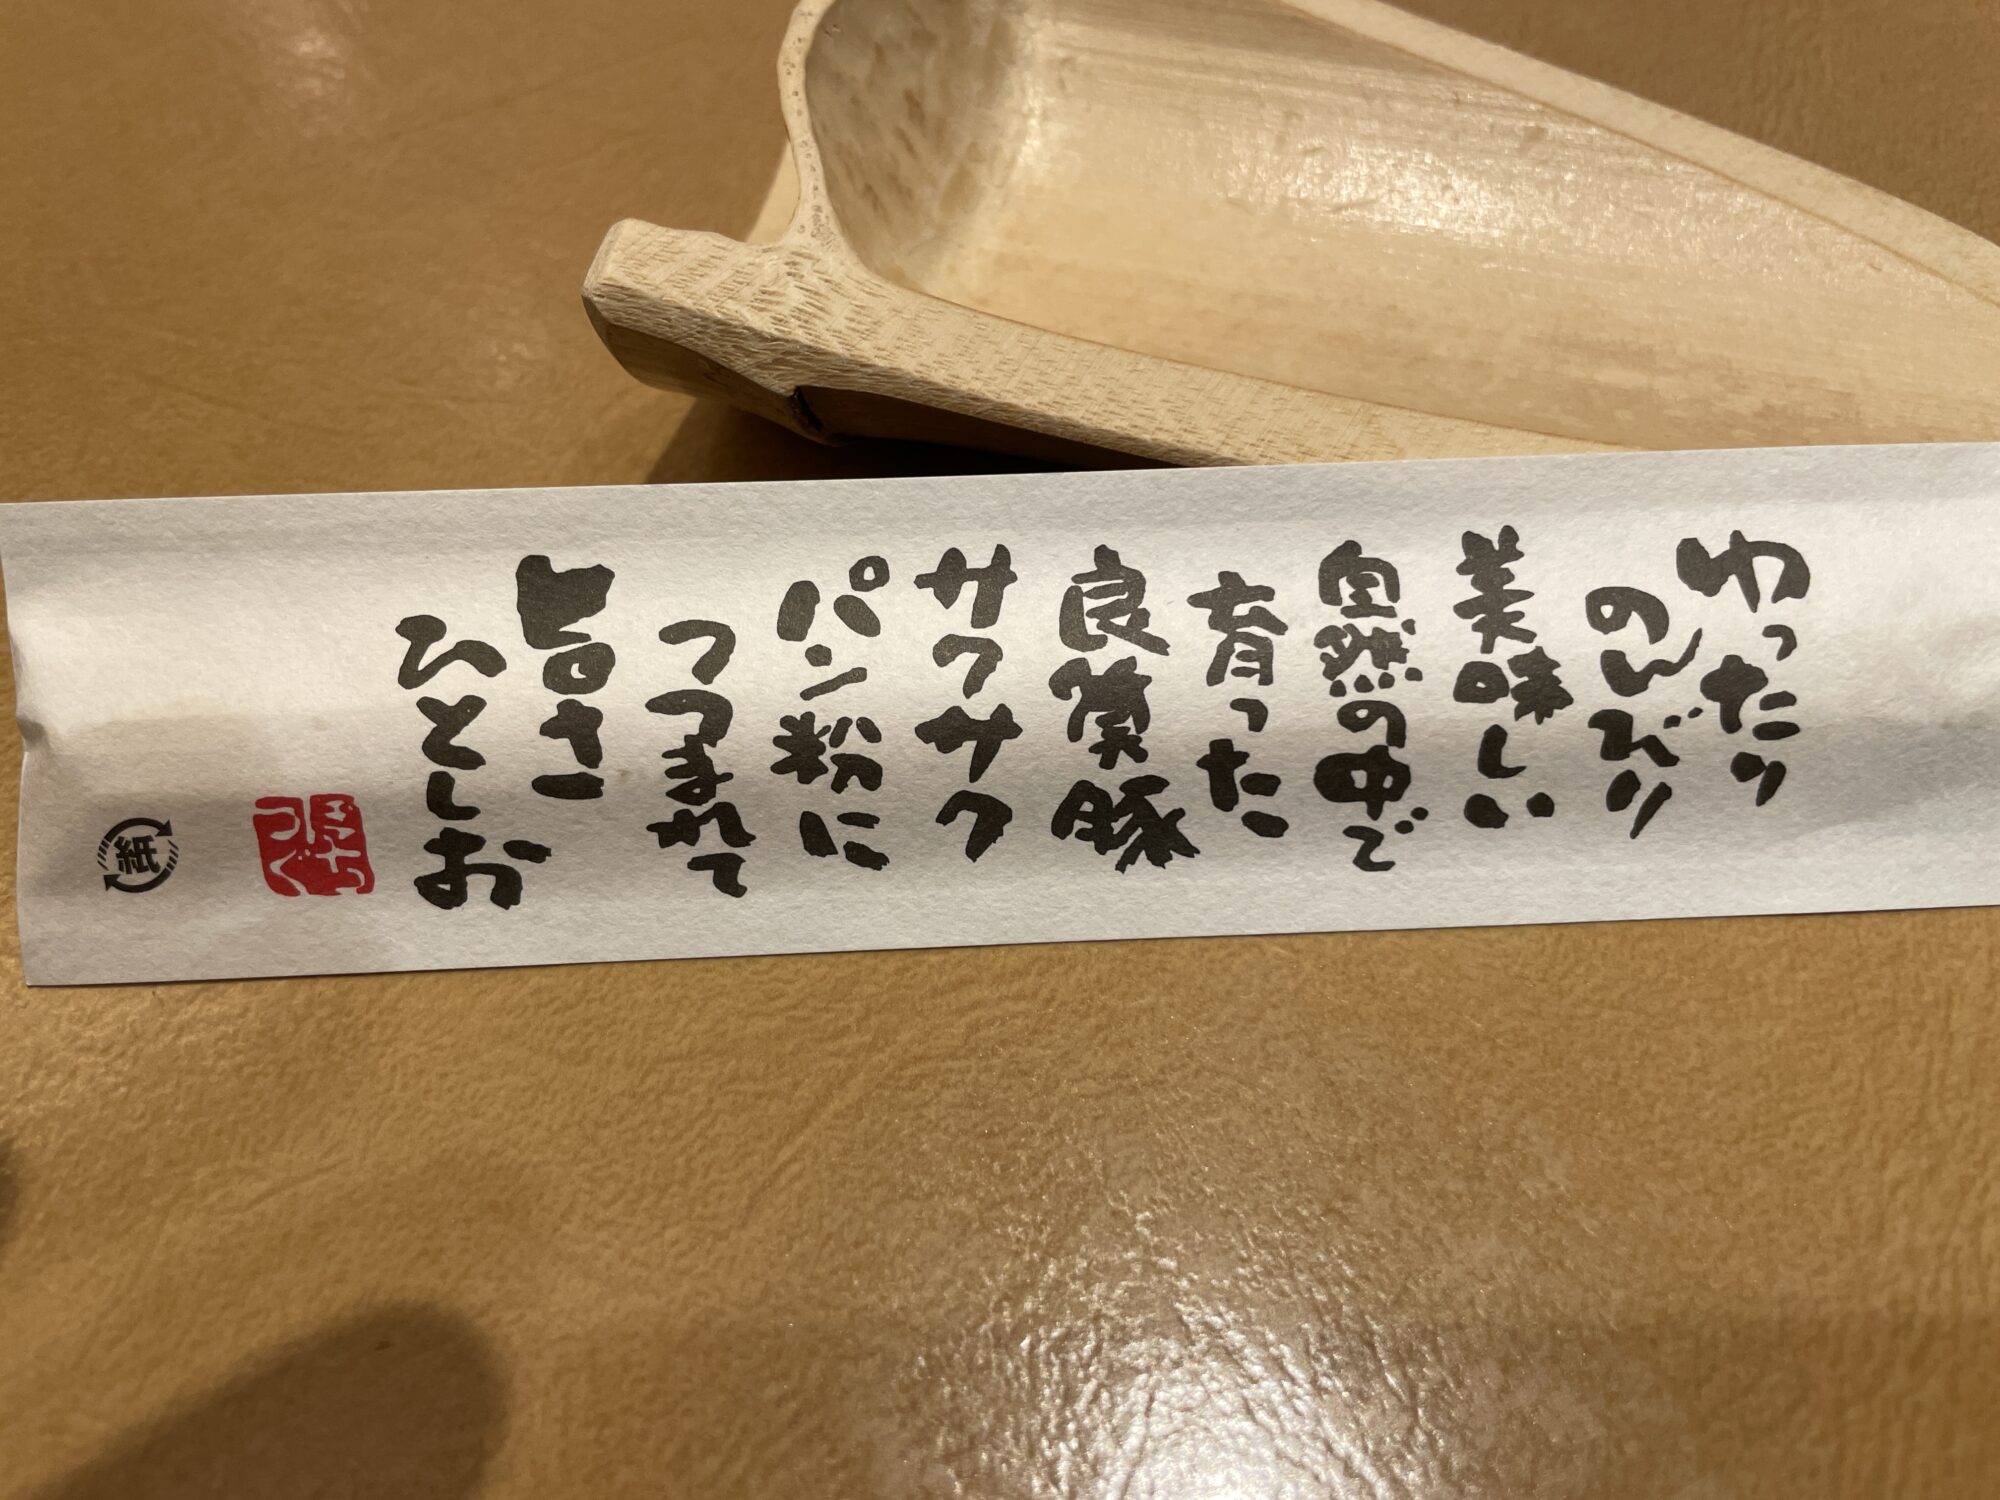 ゆったり
のんびり
美味しい
自然の中で
育った
良質豚
サクサク
パン粉に
つつまれて
旨さ
ひとしお
紙